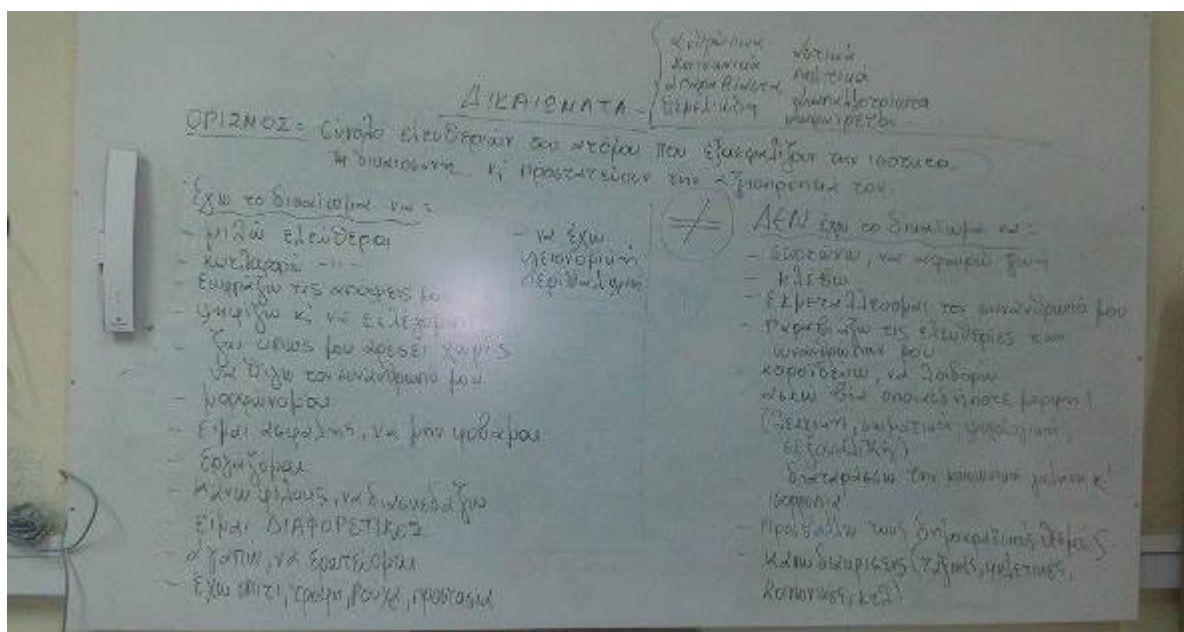 ανθρώπινα αστικά
κοινωνικά πολιτικά
απαραβίαστα
θεμελιώδη
ΔΙΚΑΙΩΜΑΤΑ -
ΟΡΙΣΜΟΣ: Σύνολο ελευθεριών του ατόμου που εξασφαλίζουν την ισότητα
τη δικαιοσύνη κ' προστατεύουν την αξιοπρέπεια του.
Έχω το δικαίωμα να:
- μιλάω ελεύθερα
- κυκλοφορώ -"-
- Εκφράζω τις απόψεις μου
- ψηφίζω κ' να εκλέγομαι
- ζω όπως μου αρέσει χωρίς
να θίγω τον συνάνθρωπο μου
- μορφώνομαι
- Είμαι ασφαλής, να μην φοβάμαι
- Εργάζομαι
- Κάνω φίλους, να διασκεδάζω
Είμαι ΔΙΑΦΟΡΕΤΙΚΟΣ
- αγαπώ, να ερωτεύομαι
- Έχω σπίτι, τροφή, ρούχα, προστασία
- να έχω
υγειονομική
περίθαλψη
≠
ΔΕΝ έχω το δικαίωμα να:
- σκοτώνω, να αφαιρώ ζωή
- κλέβω
- Εκμεταλλεύομαι τον συνάνθρωπό μου
- Παραβιάζω τις ελευθερίες των
συνανθρώπων μου
- κοροϊδεύω, να λοιδορώ
- ασκώ βία οποιασδήποτε μορφής
(λεκτική, σωματική, ψυχολογική,
σεξουαλική)
διαταράσσω την κοινωνική γαλήνη κ'
ισορροπία
- Προσβάλλω τους δημοκρατικούς θεσμούς
- Κάνω διακρίσεις (ταξικές, φυλετικές,
κοινωνικές, κτλ)